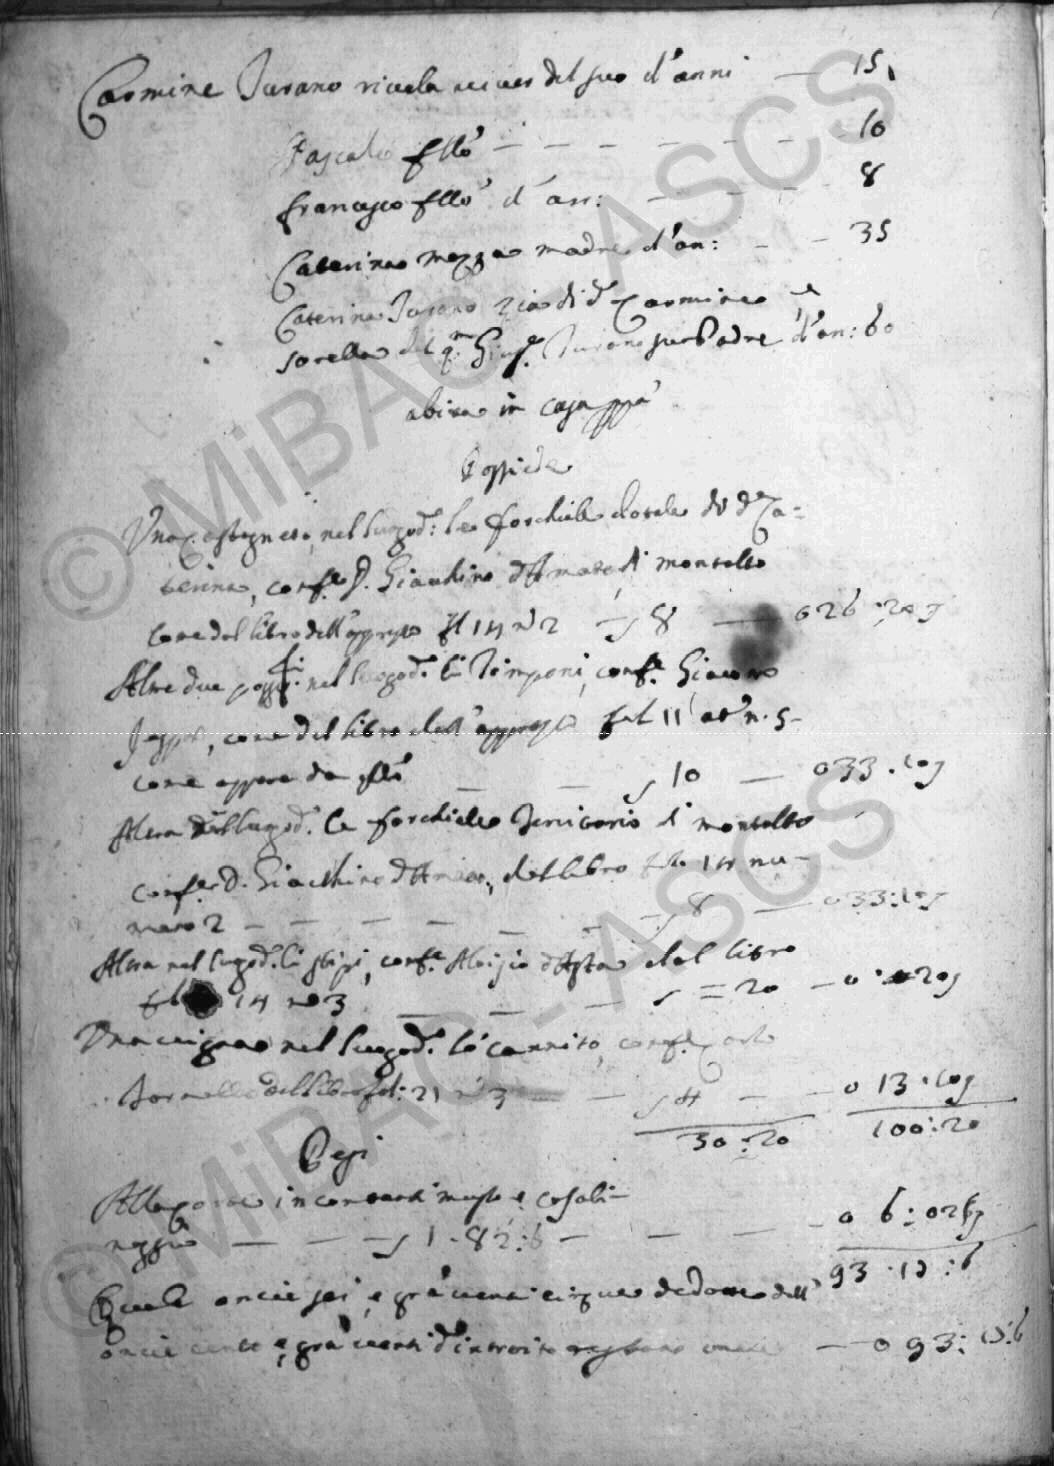 Carmine Turano rivela viver del suo d'anni — 15
Pascale f͠llo — — — — — — 10
francesco f͠llo d'an: — — — 8
Caterina mazza madre d'an: — — 35
Caterina Turano zia di d.º Carmine e
sorella del q.m Gius.e Turano suo Padre d'an: 60
abita in casa pp͠a
Possiede
Una Castagneto, nel luogo d.º: le forchie dotale di d.ª Ca=
terina, conf.e D. Giachino d'Amato di montalto
come dal libro dell'apprezzo f.l 14 nº 2 — 8 — 026:20
Altre due nel luogo d.º li Timponi, conf.e Giacomo
come del libro dell'apprezzo fol 11 at.º n. 5
come appare da — — 10 — 033.10
Altra nel luogo d.º le forchie Territorio di montalto
conf.e D. Giachino d'Amato, del libro f.lo 14 nu-
mero 2 — — — — — 8 — 033:10
Altra nel luogo d.º li conf.e Aloisio d'Asta dal libro
14 nº 3 — — — = 20 — 0 20
Una vigna nel luogo d.º lo cannito, conf.e Carlo
del libro fol: 21 nº 3 — — 4 — — 0 13.10
30:20 100:20
Pesi
Alla corte in contanti mastro e casali-
naggio — — — 1-82:6 — — — 0 6:025
93.15:6
Quale oncie sei, e grà venti cinque dedotte dall'
oncie cento e grà venti d'introito restano oncie — 0 93:15:6
© MiBAC - ASCS
© MiBAC - ASCS